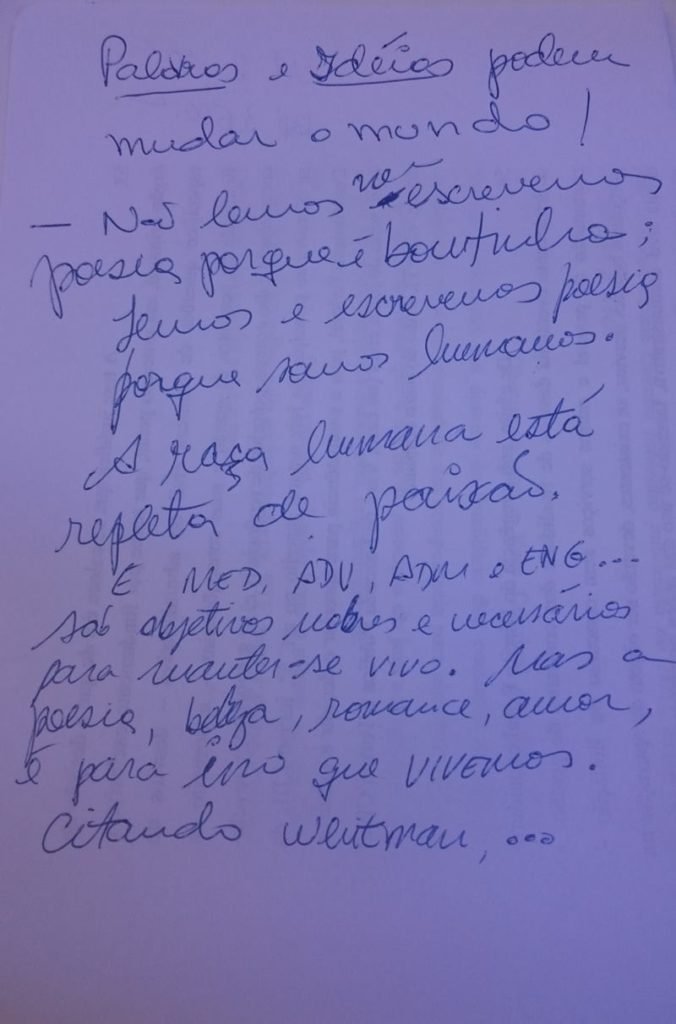 Palavras e Idéias podem
mudar o mundo!
— Não lemos nem escrevemos
poesia porque é bonitinho;
Lemos e escrevemos poesia
porque somos humanos.
A raça humana está
repleta de paixão.
E MED, ADV, ADM e ENG...
são objetivos nobres e necessários
para manter-se vivo. Mas a
poesia, beleza, romance, amor,
é para isso que VIVEMOS.
Citando Whitman, ...